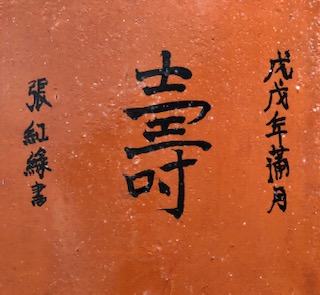 戊戌年滿月
壽
張紅緣書